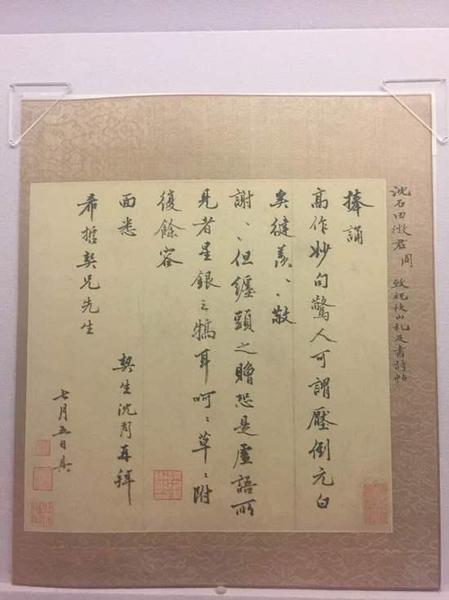 沈石田徵君周 致祝枝山札及書詩帖
捧誦
高作妙句驚人可謂壓倒元白
矣健羨、、敬
謝、但纏頭之贈恐是虛語所
見者星銀之犒耳呵、草、附
復餘容
面悉 契生沈周再拜
希哲契兄先生
七月五日具